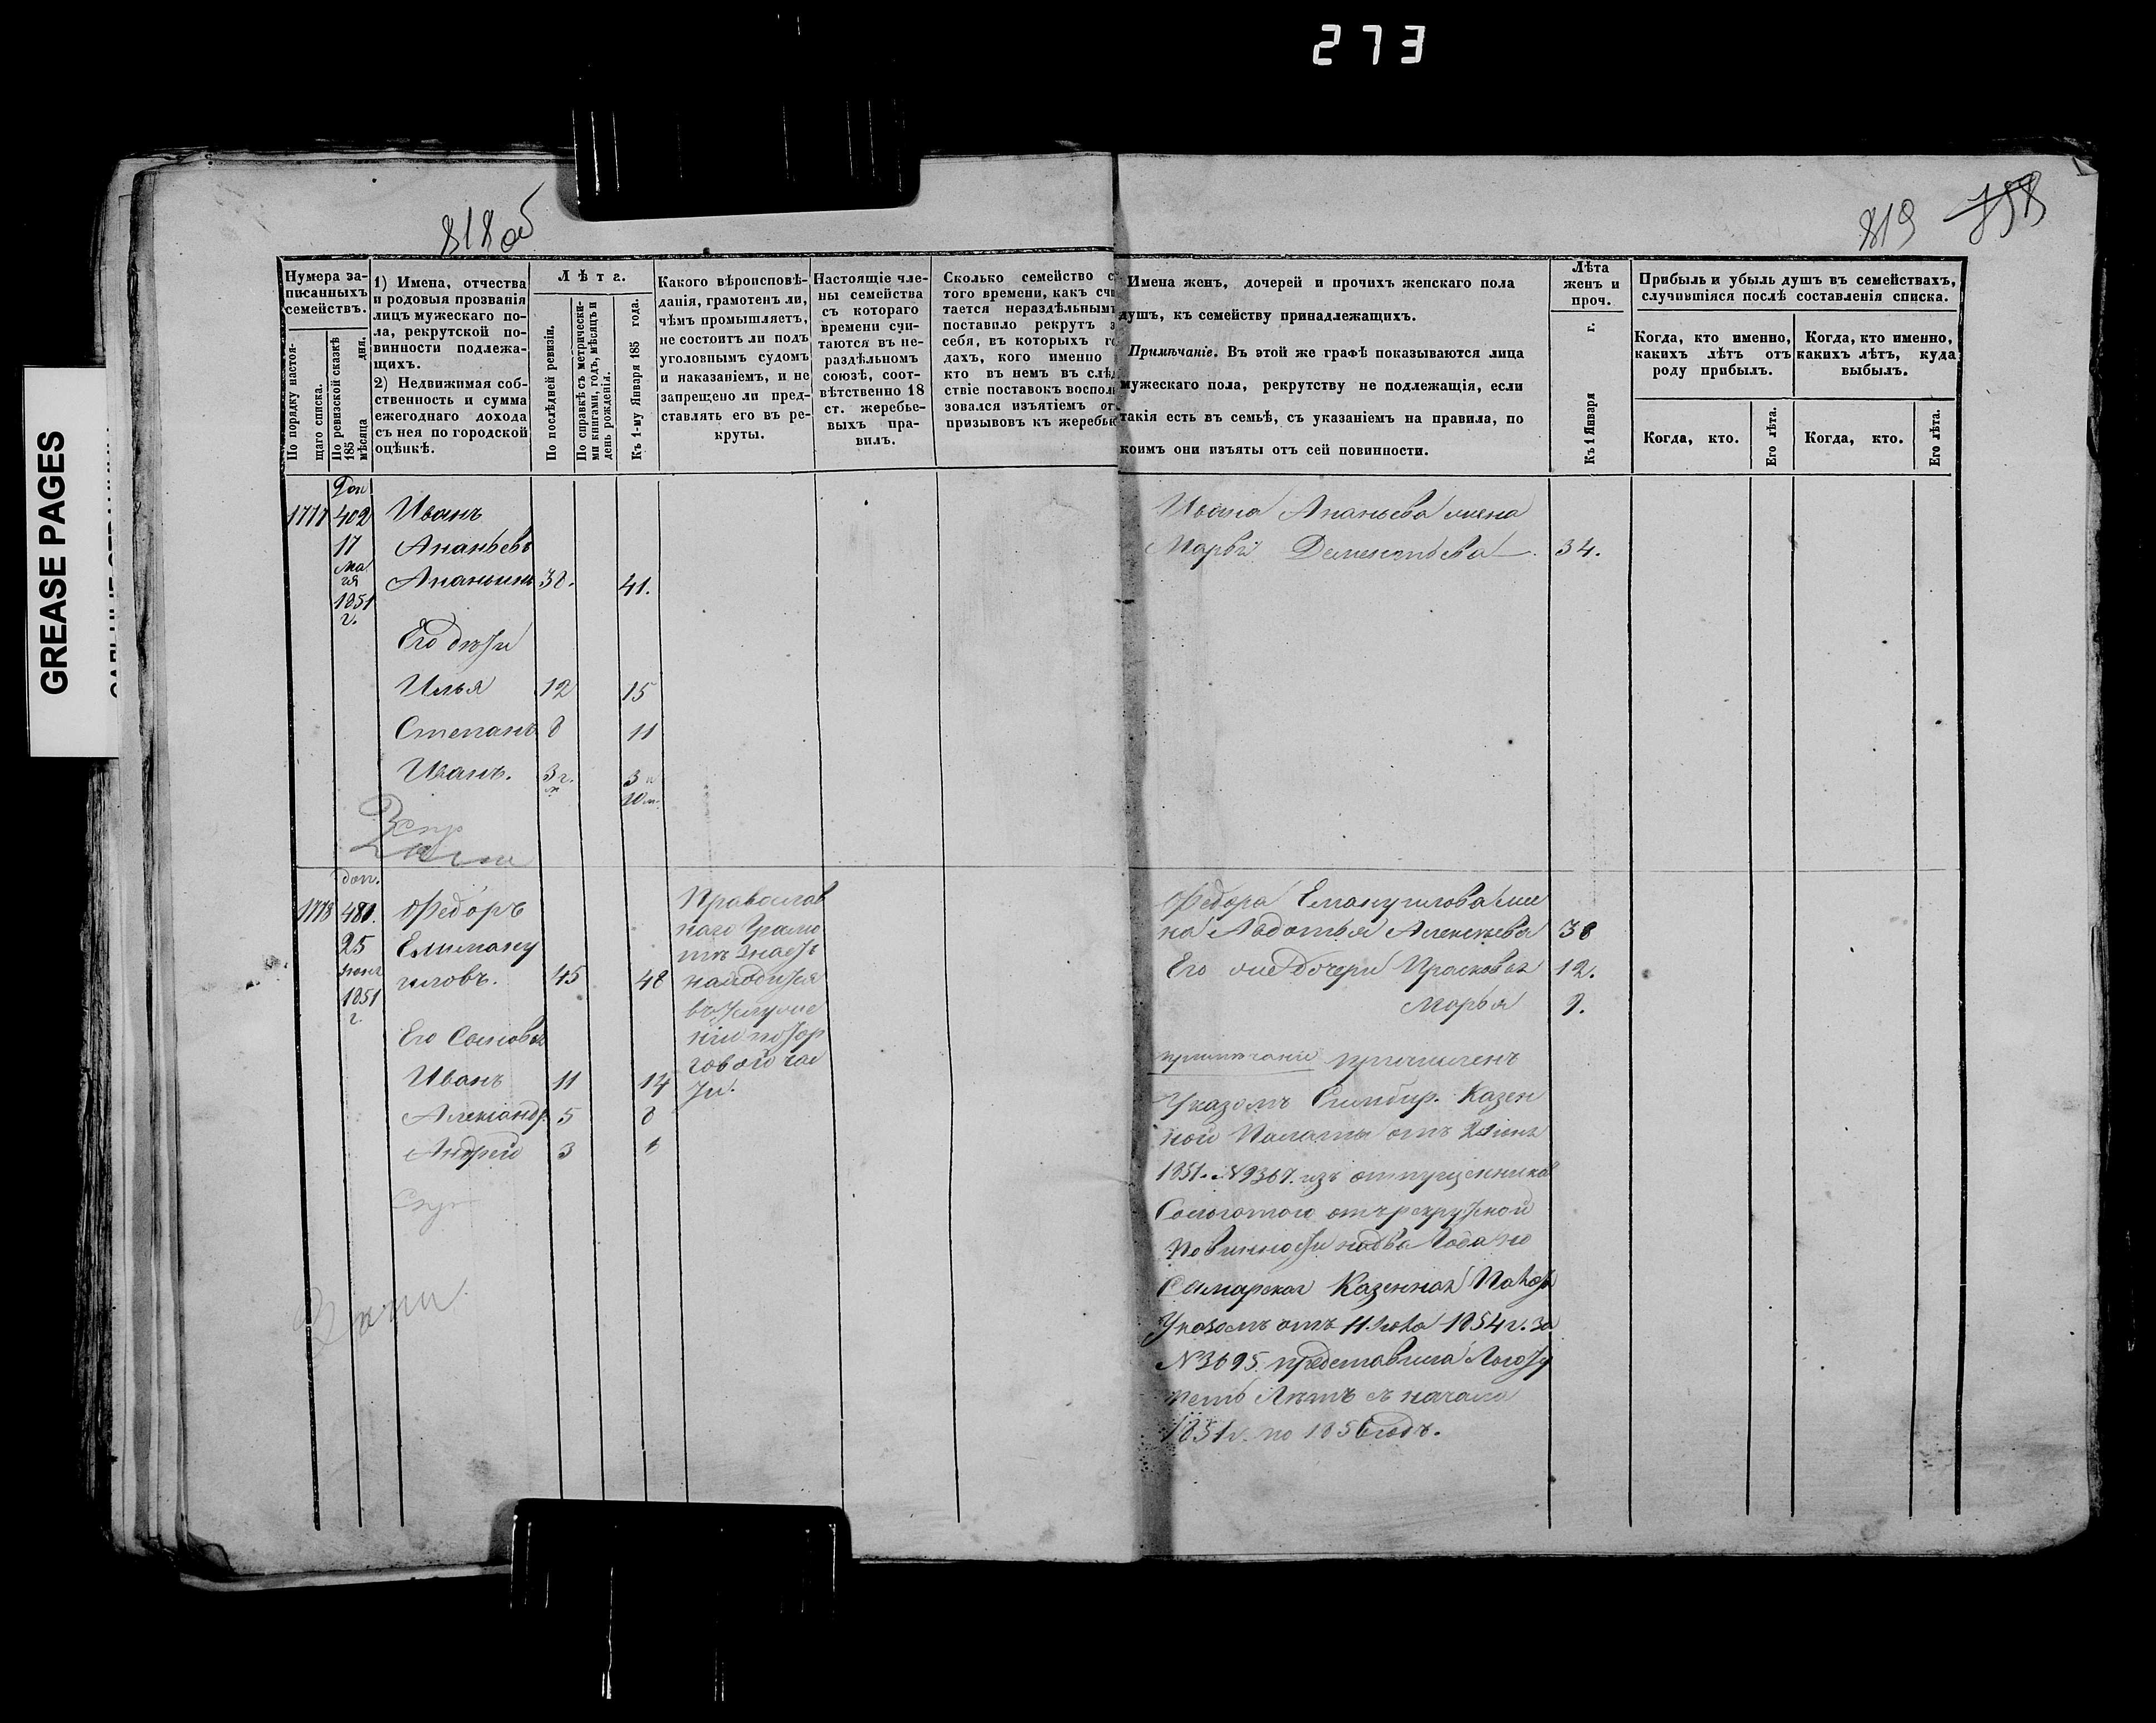 273
GREASE PAGES
818 об
819
Нумера записанныхъ семействъ.
По порядку настоящаго списка.
По ревизской сказкѣ 185 мѣсяца дня.
1) Имена, отчества
и родовыя прозванія
лицъ мужескаго по-
ла, рекрутской по-
винности подлежа-
щихъ.
2) Недвижимая соб-
ственность и сумма
ежегоднаго дохода
съ нея по городской
оцѣнкѣ.
Лѣта.
По послѣдней ревизіи.
По справкѣ съ метрически-
ми книгами, годъ, мѣсяцъ и
день рожденія.
Къ 1-му Января 185 года.
Какого вѣроисповѣ-
данія, грамотенъ ли,
чѣмъ промышляетъ,
не состоитъ ли подъ
уголовнымъ судомъ
и наказаніемъ, и не
запрещено ли пред-
ставлять его въ ре-
круты.
Настоящіе чле-
ны семейства
съ котораго
времени счи-
таются въ не-
раздѣльномъ
союзѣ, соот-
вѣтственно 18
ст. жеребье-
выхъ пра-
вилъ.
Сколько семейство с
того времени, какъ счи
тается нераздѣльнымъ
поставило рекрутъ з
себя, въ которыхъ го
дахъ, кого именно
кто въ немъ въ слѣд
ствіе поставокъ воспол
зовался изъятіемъ от
призывовъ къ жеребью
Имена женъ, дочерей и прочихъ женскаго пола
душъ, къ семейству принадлежащихъ.
Примѣчаніе. Въ этой же графѣ показываются лица
мужескаго пола, рекрутству не подлежащія, если
такія есть въ семьѣ, съ указаніемъ на правила, по
коимъ они изъяты отъ сей повинности.
Лѣта
женъ и
проч.
Къ 1 Января г.
Прибыль и убыль душъ въ семействахъ,
случившіяся послѣ составленія списка.
Когда, кто именно,
какихъ лѣтъ отъ
роду прибылъ.
Когда, кто именно,
какихъ лѣтъ, куда
выбылъ.
Когда, кто.
Его лѣта.
Когда, кто.
Его лѣта.
Доп
1777 402 Иванъ
17 Ананьевъ
мая Ананьинъ 38. 41.
1851
г.
Его дѣти
Илья 12 15
Степанъ 8 11
Иванъ. 3 г. 3 и
10 м.
Ивана Ананьева жена
Марья Дементьева 34.
доп.
1778 481. Федоръ
25 Емману
іюня иловъ. 45 48
1851
г.
Его Сыновья
Иванъ 11 14
Александр. 5 8
Андрей 3 6
Православ
наго Грамо
тѣ знаетъ
находится
въ услуже
ніи по тор
говой час
ти.
Федора Емануилова же
на Авдотья Алексѣева 38
Его же дочери Прасковья 12.
Марья 9.
примѣчаніе причисленъ
Указомъ Симбир. Казен
ной Палаты отъ іюня
1851. № 9367. изъ отпущенниковъ
Сольготою отъ рекрутской
Повинности на два Года но
Самарская Казенная Палата
Указомъ отъ 11. 1854 г. за
№ 3695. предоставила Льготу
лѣтъ съ начала
1851 г. по 1856 годъ.